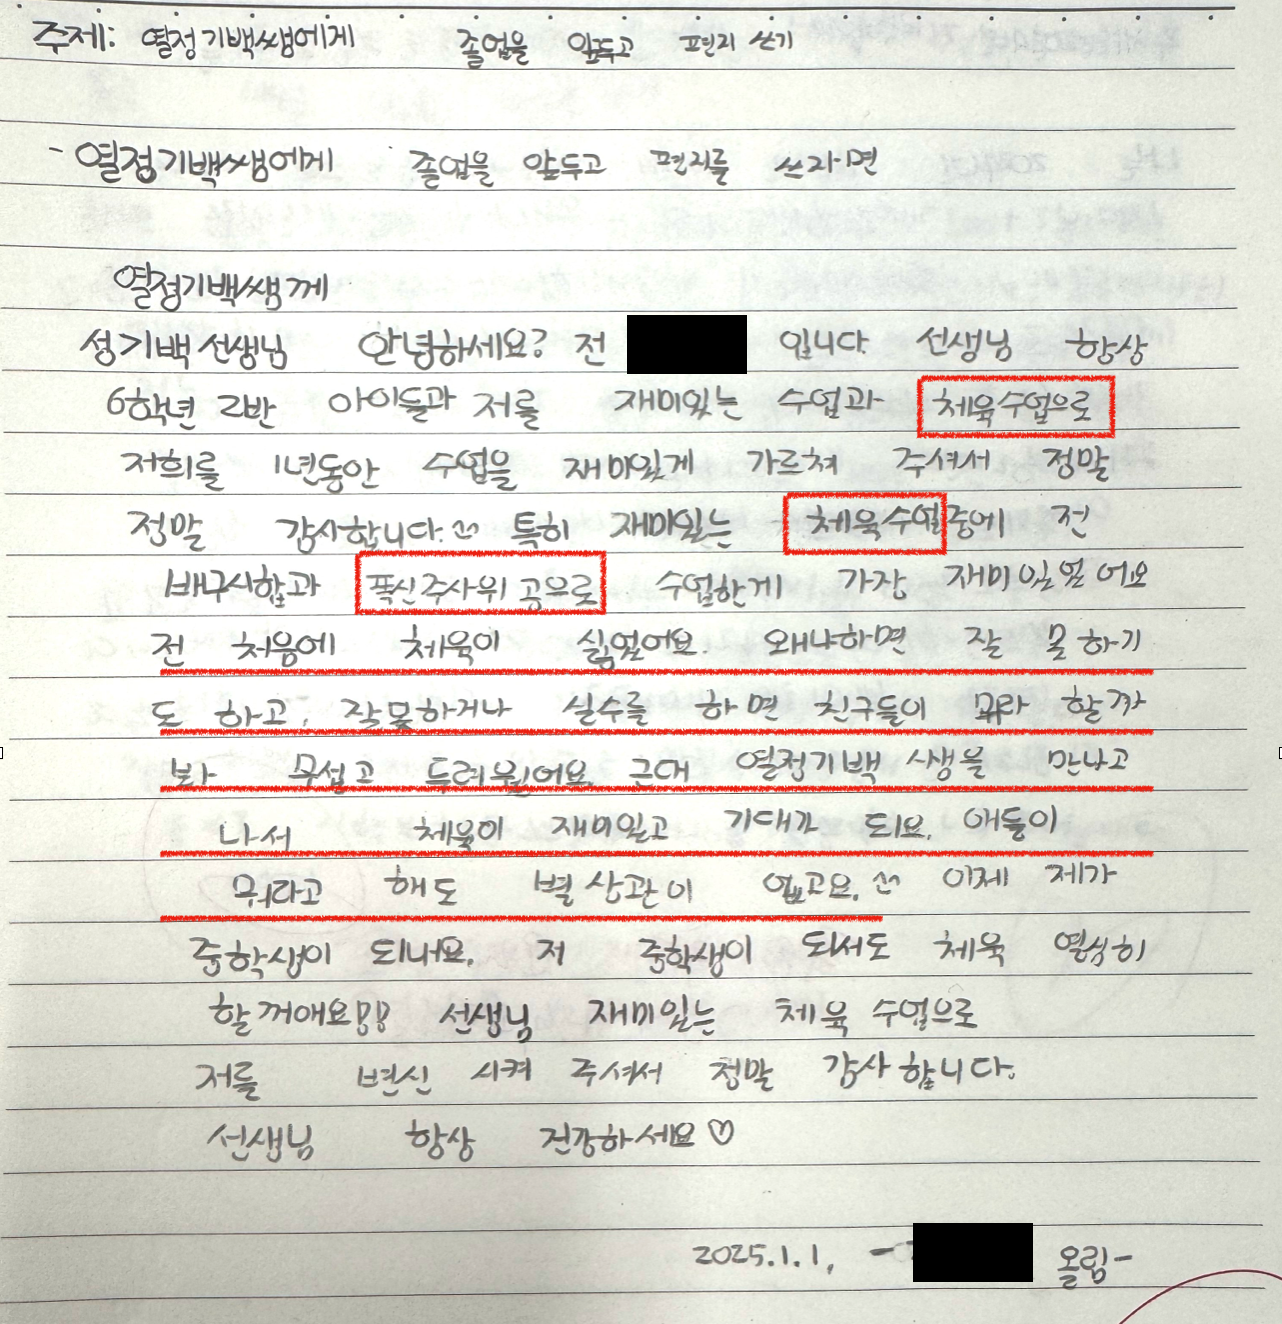 주제: 열정기백쌤에게 졸업을 앞두고 편지 쓰기
- 열정기백쌤에게 졸업을 앞두고 편지를 쓰자면
열정기백쌤께
성기백 선생님 안녕하세요? 전 입니다. 선생님 항상
6학년 2반 아이들과 저를 재미있는 수업과 체육수업으로
저희를 1년동안 수업을 재미있게 가르쳐 주셔서 정말
정말 감사합니다. ^^ 특히 재미있는 체육수업중에 전
배구시합과 푹신주사위 공으로 수업한게 가장 재미있었어요
전 처음에 체육이 싫었어요. 왜냐하면 잘 못하기
도 하고, 잘못하거나 실수를 하면 친구들이 뭐라 할까
봐 무섭고 두려웠어요. 근데 열정기백 쌤을 만나고
나서 체육이 재미있고 기대가 되요. 애들이
뭐라고 해도 별 상관이 없고요. ^^ 이제 제가
중학생이 되내요. 저 중학생이 되서도 체육 열심히
할꺼애요!! 선생님 재미있는 체육 수업으로
저를 변신 시켜 주셔서 정말 감사합니다.
선생님 항상 건강하세요♡
2025.1.1. - 올림-